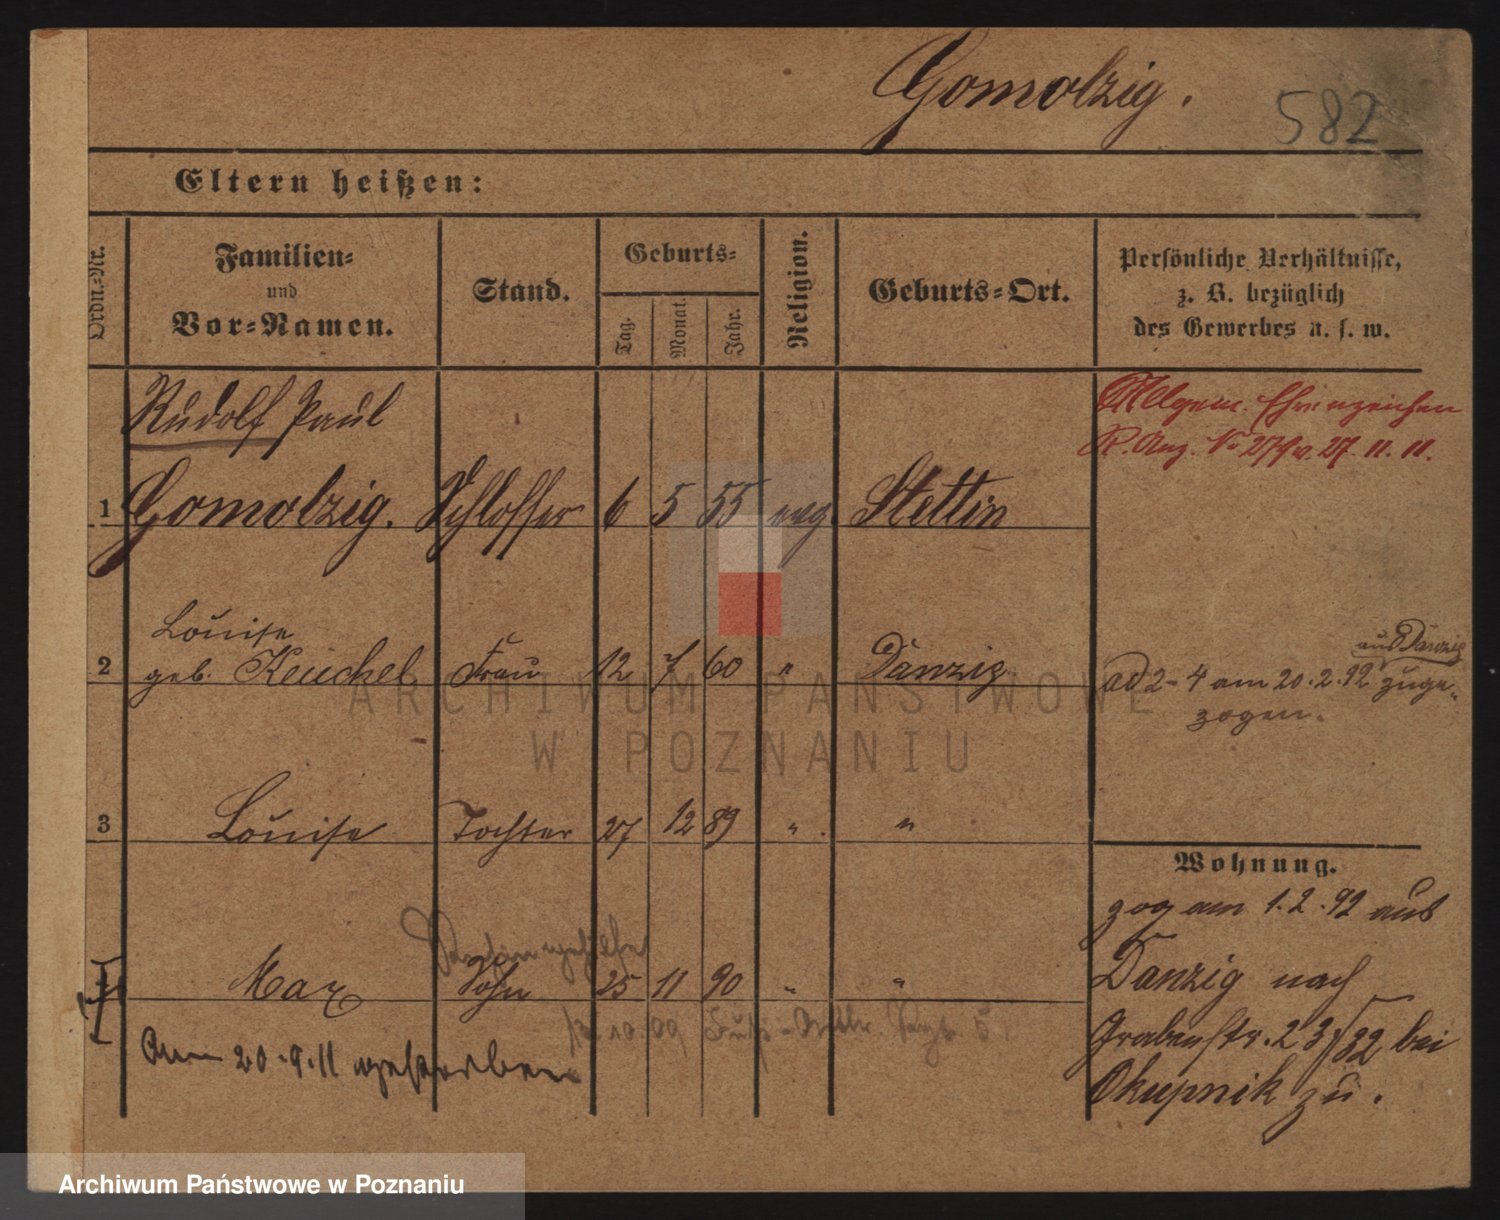 Gomolzig.
582
Eltern heißen:
Ordn.-Nr.
Familien-
und
Vor-Namen.
Stand.
Geburts-
Tag.
Monat.
Jahr.
Religion.
Geburts-Ort.
Persönliche Verhältnisse,
z. B. bezüglich
des Gewerbes u. s. w.
Rudolf Paul
Allgem. Ehrenzeichen
R. Anz. No 279 v. 27. 11. 11.
1 Gomolzig. Schlosser 6 5 55 evg. Stettin
Louise
2 geb. Keuchel Frau 12 7 60 " Danzig
aus Danzig
ad 2-4 am 20.2.92 zuge-
zogen.
3 Louise Tochter 27 12 89 " "
Wohnung.
zog am 1.2.92 aus
Danzig nach
Grabenstr. 23/32 bei
Okupnik zu.
4 Max Sohn 25 11 90 " "
Am 20.9.11 gestorben
ARCHIWUM PAŃSTWOWE
W POZNANIU
Archiwum Państwowe w Poznaniu